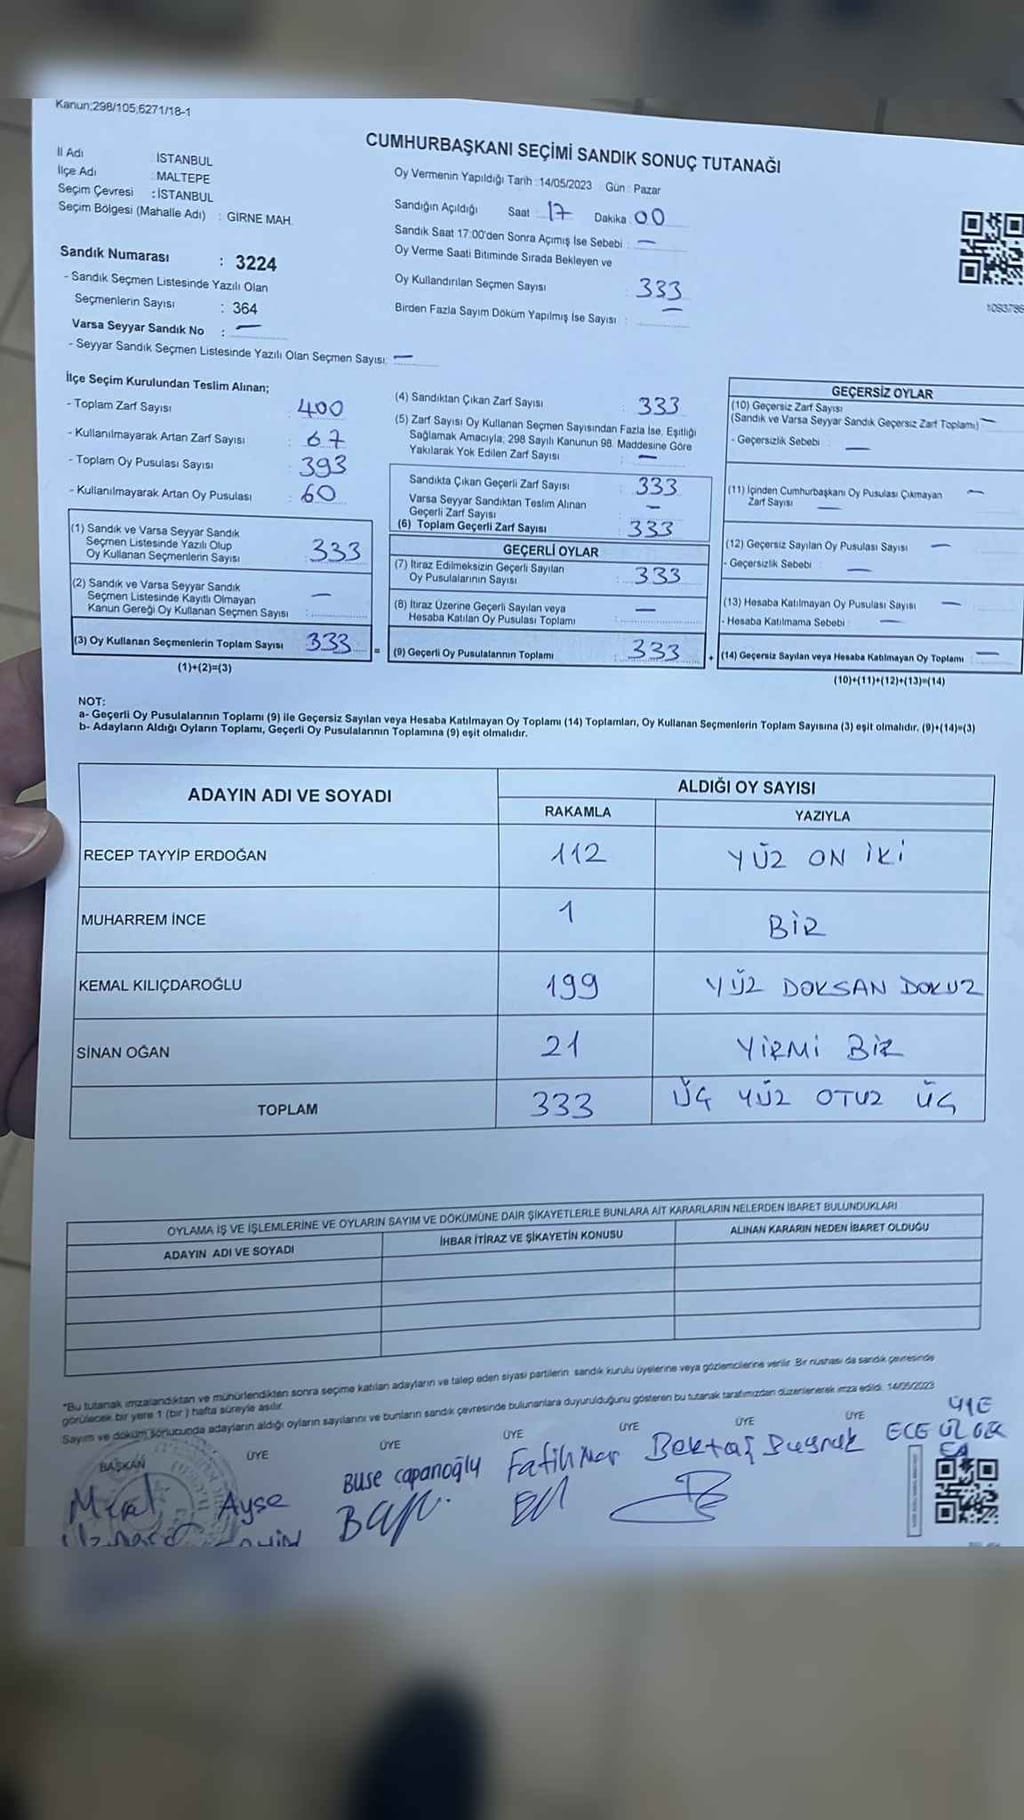 Kanun;298/105,6271/18-1
CUMHURBAŞKANI SEÇİMİ SANDIK SONUÇ TUTANAĞI
İl Adı İSTANBUL
İlçe Adı : MALTEPE
Seçim Çevresi : İSTANBUL
Seçim Bölgesi (Mahalle Adı) : GİRNE MAH.
Sandık Numarası : 3224
- Sandık Seçmen Listesinde Yazılı Olan
Seçmenlerin Sayısı : 364
Varsa Seyyar Sandık No : —
- Seyyar Sandık Seçmen Listesinde Yazılı Olan Seçmen Sayısı: —
Oy Vermenin Yapıldığı Tarih :14/05/2023 Gün : Pazar
Sandığın Açıldığı Saat 17 Dakika 00
Sandık Saat 17:00'den Sonra Açımış İse Sebebi : —
Oy Verme Saati Bitiminde Sırada Bekleyen ve
Oy Kullandırılan Seçmen Sayısı : 333
Birden Fazla Sayım Döküm Yapılmış İse Sayısı : —
İlçe Seçim Kurulundan Teslim Alınan;
- Toplam Zarf Sayısı : 400
- Kullanılmayarak Artan Zarf Sayısı : 67
- Toplam Oy Pusulası Sayısı : 393
- Kullanılmayarak Artan Oy Pusulası : 60
(1) Sandık ve Varsa Seyyar Sandık
Seçmen Listesinde Yazılı Olup
Oy Kullanan Seçmenlerin Sayısı : 333
(2) Sandık ve Varsa Seyyar Sandık
Seçmen Listesinde Kayıtlı Olmayan
Kanun Gereği Oy Kullanan Seçmen Sayısı : —
(3) Oy Kullanan Seçmenlerin Toplam Sayısı 333
(1)+(2)=(3)
(4) Sandıktan Çıkan Zarf Sayısı : 333
(5) Zarf Sayısı Oy Kullanan Seçmen Sayısından Fazla İse, Eşitliği
Sağlamak Amacıyla, 298 Sayılı Kanunun 98. Maddesine Göre
Yakılarak Yok Edilen Zarf Sayısı : —
Sandıkta Çıkan Geçerli Zarf Sayısı : 333
Varsa Seyyar Sandıktan Teslim Alınan
Geçerli Zarf Sayısı : —
(6) Toplam Geçerli Zarf Sayısı : 333
GEÇERLİ OYLAR
(7) İtiraz Edilmeksizin Geçerli Sayılan
Oy Pusulalarının Sayısı : 333
(8) İtiraz Üzerine Geçerli Sayılan veya
Hesaba Katılan Oy Pusulası Toplamı : —
= (9) Geçerli Oy Pusulalarının Toplamı : 333
1093786
GEÇERSİZ OYLAR
(10) Geçersiz Zarf Sayısı
(Sandık ve Varsa Seyyar Sandık Geçersiz Zarf Toplamı) —
- Geçersizlik Sebebi : —
(11) İçinden Cumhurbaşkanı Oy Pusulası Çıkmayan —
Zarf Sayısı : —
(12) Geçersiz Sayılan Oy Pusulası Sayısı : —
- Geçersizlik Sebebi : —
(13) Hesaba Katılmayan Oy Pusulası Sayısı : —
- Hesaba Katılmama Sebebi : —
+ (14) Geçersiz Sayılan veya Hesaba Katılmayan Oy Toplamı : —
(10)+(11)+(12)+(13)=(14)
NOT:
a- Geçerli Oy Pusulalarının Toplamı (9) ile Geçersiz Sayılan veya Hesaba Katılmayan Oy Toplamı (14) Toplamları, Oy Kullanan Seçmenlerin Toplam Sayısına (3) eşit olmalıdır. (9)+(14)=(3)
b- Adayların Aldığı Oyların Toplamı, Geçerli Oy Pusulalarının Toplamına (9) eşit olmalıdır.
ADAYIN ADI VE SOYADI ALDIĞI OY SAYISI
RAKAMLA YAZIYLA
RECEP TAYYİP ERDOĞAN 112 YÜZ ON İKİ
MUHARREM İNCE 1 BİR
KEMAL KILIÇDAROĞLU 199 YÜZ DOKSAN DOKUZ
SİNAN OĞAN 21 YİRMİ BİR
TOPLAM 333 ÜÇ YÜZ OTUZ ÜÇ
OYLAMA İŞ VE İŞLEMLERİNE VE OYLARIN SAYIM VE DÖKÜMÜNE DAİR ŞİKAYETLERLE BUNLARA AİT KARARLARIN NELERDEN İBARET BULUNDUKLARI
ADAYIN ADI VE SOYADI İHBAR İTİRAZ VE ŞİKAYETİN KONUSU ALINAN KARARIN NEDEN İBARET OLDUĞU
"Bu tutanak imzalandıktan ve mühürlendikten sonra seçime katılan adayların ve talep eden siyasi partilerin sandık kurulu üyelerine veya gözlemcilerine verilir. Bir nüshası da sandık çevresinde
görülecek bir yere 1 (bir ) hafta süreyle asılır.
Sayım ve döküm sonucunda adayların aldığı oyların sayılarını ve bunların sandık çevresinde bulunanlara duyurulduğunu gösteren bu tutanak tarafımızdan düzenlenerek imza edildi. 14/05/2023
BAŞKAN ÜYE ÜYE ÜYE ÜYE ÜYE ÜYE ÜYE
Ayşe Buse Capanoğlu Bektaş ECE